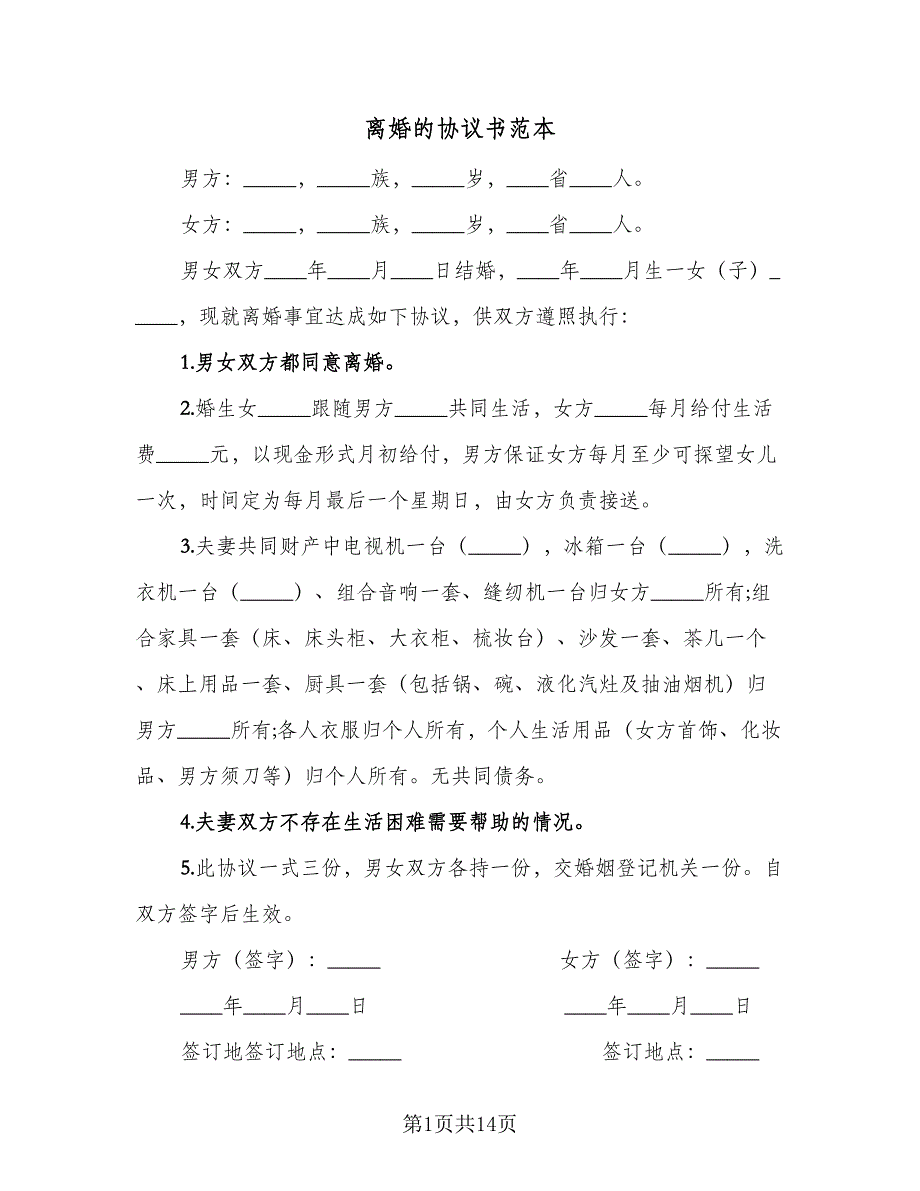 离婚的协议书范本
男方：_____，_____族，_____岁，____省____人。
女方：_____，_____族，_____岁，____省____人。
男女双方____年____月____日结婚，____年____月生一女（子）_
____，现就离婚事宜达成如下协议，供双方遵照执行：
1.男女双方都同意离婚。
2.婚生女_____跟随男方_____共同生活，女方_____每月给付生活
费_____元，以现金形式月初给付，男方保证女方每月至少可探望女儿
一次，时间定为每月最后一个星期日，由女方负责接送。
3.夫妻共同财产中电视机一台（_____），冰箱一台（_____），洗
衣机一台（_____）、组合音响一套、缝纫机一台归女方_____所有;组
合家具一套（床、床头柜、大衣柜、梳妆台）、沙发一套、茶几一个
、床上用品一套、厨具一套（包括锅、碗、液化汽灶及抽油烟机）归
男方_____所有;各人衣服归个人所有，个人生活用品（女方首饰、化妆
品、男方须刀等）归个人所有。无共同债务。
4.夫妻双方不存在生活困难需要帮助的情况。
5.此协议一式三份，男女双方各持一份，交婚姻登记机关一份。自
双方签字后生效。
男方（签字）：_____ 女方（签字）：_____
____年____月____日 ____年____月____日
签订地签订地点：_____ 签订地点：_____
第1页共14页